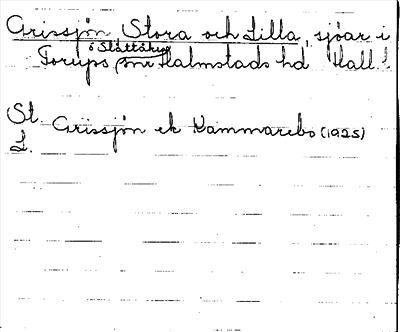 Grissjön Stora och Lilla, sjöar i
o Slättåkra
Torups snr Halmstads hd Hall. l
St. Grissjön ek Kammarebo (1925)
L.